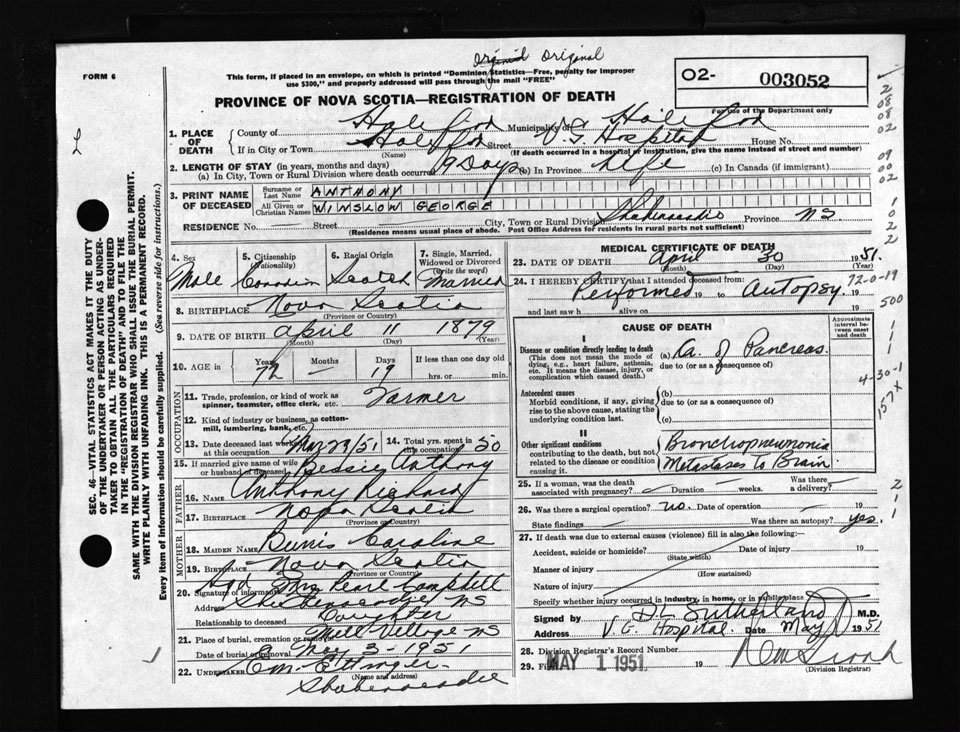 original original
FORM 6
This form, if placed in an envelope, on which is printed "Dominion Statistics—Free, penalty for improper
use $300," and properly addressed will pass through the mail "FREE"
O2- 003052
For use of the Department only
PROVINCE OF NOVA SCOTIA—REGISTRATION OF DEATH
1. PLACE OF DEATH County of Halifax Municipality Halifax
If in City or Town Halifax Street V.G. Hospital House No.
(Name) (If death occurred in a hospital or institution, give the name instead of street and number)
2. LENGTH OF STAY (in years, months and days)
(a) In City, Town or Rural Division where death occurred 19 Days (b) In Province Life (c) In Canada (if immigrant)
3. PRINT NAME OF DECEASED Surname or Last Name ANTHONY
All Given or Christian Names WINSLOW GEORGE
RESIDENCE No. Street City, Town or Rural Division Shubenacadie Province N.S.
(Residence means usual place of abode. Post Office Address for residents in rural parts not sufficient)
4. Sex Male
5. Citizenship (Nationality) Canadian
6. Racial Origin Scotch
7. Single, Married, Widowed or Divorced (write the word) Married
8. BIRTHPLACE Nova Scotia
(Province or Country)
9. DATE OF BIRTH April 11 1879
(Month) (Day) (Year)
10. AGE in Years 72 Months Days 19 If less than one day old
hrs. or min.
OCCUPATION
11. Trade, profession, or kind of work as spinner, teamster, office clerk, etc. Farmer
12. Kind of industry or business, as cotton-mill, lumbering, bank, etc.
13. Date deceased last worked at this occupation 29/51
14. Total yrs. spent in this occupation 50
15. If married give name of wife or husband of deceased Bessie Anthony
FATHER
16. NAME Anthony Richard
17. BIRTHPLACE Nova Scotia
(Province or Country)
MOTHER
18. MAIDEN NAME Caroline
19. BIRTHPLACE Nova Scotia
(Province or Country)
20. Signature of informant Mrs Pearl Campbell
Address Shubenacadie NS
Relationship to deceased Daughter
21. Place of burial, cremation or removal Mill Village NS
Date of burial or removal May 3-1951
22. UNDERTAKER E.M. Ettinger
(Name and address)
Shubenacadie
MEDICAL CERTIFICATE OF DEATH
23. DATE OF DEATH April 30 1951.
(Month) (Day) (Year)
24. I HEREBY CERTIFY that I attended deceased from:
Performed 19 to Autopsy. 19
and last saw h alive on 19
72-0-19
500
CAUSE OF DEATH
Approximate interval between onset and death
I
Disease or condition directly leading to death
(This does not mean the mode of dying, e.g., heart failure, asthenia, etc. It means the disease, injury, or complication which caused death.)
(a) Ca. of Pancreas.
due to (or as a consequence of)
4-30-1
157X
Antecedent causes
Morbid conditions, if any, giving rise to the above cause, stating the underlying condition last.
(b)
due to (or as a consequence of)
(c)
II
Other significant conditions
contributing to the death, but not related to the disease or condition causing it
Bronchopneumonia
Metastases To Brain
25. If a woman, was the death associated with pregnancy? Duration weeks. Was there a delivery?
26. Was there a surgical operation? no. Date of operation 19
State findings Was there an autopsy? yes.
27. If death was due to external causes (violence) fill in also the following:
Accident, suicide or homicide? Date of injury 19
(State which)
Manner of injury
(How sustained)
Nature of injury
Specify whether injury occurred in industry, in home, or in public place
Signed by D.L. Sutherland M.D.
Address V.G. Hospital. Date May 1 1951
28. Division Registrar's Record Number
29. Filed MAY 1 1951 19
(Division Registrar)
SEC. 46—VITAL STATISTICS ACT MAKES IT THE DUTY
OF THE UNDERTAKER OR PERSON ACTING AS UNDER-
TAKER TO OBTAIN ALL THE PARTICULARS REQUIRED
IN THE "REGISTRATION OF DEATH" AND TO FILE THE
SAME WITH THE DIVISION REGISTRAR WHO SHALL ISSUE THE BURIAL PERMIT.
WRITE PLAINLY WITH UNFADING INK. THIS IS A PERMANENT RECORD.
Every item of information should be carefully supplied. (See reverse side for instructions.)
2
08
08
02
09
00
02
1
0
2
2
1
1
1
2
1